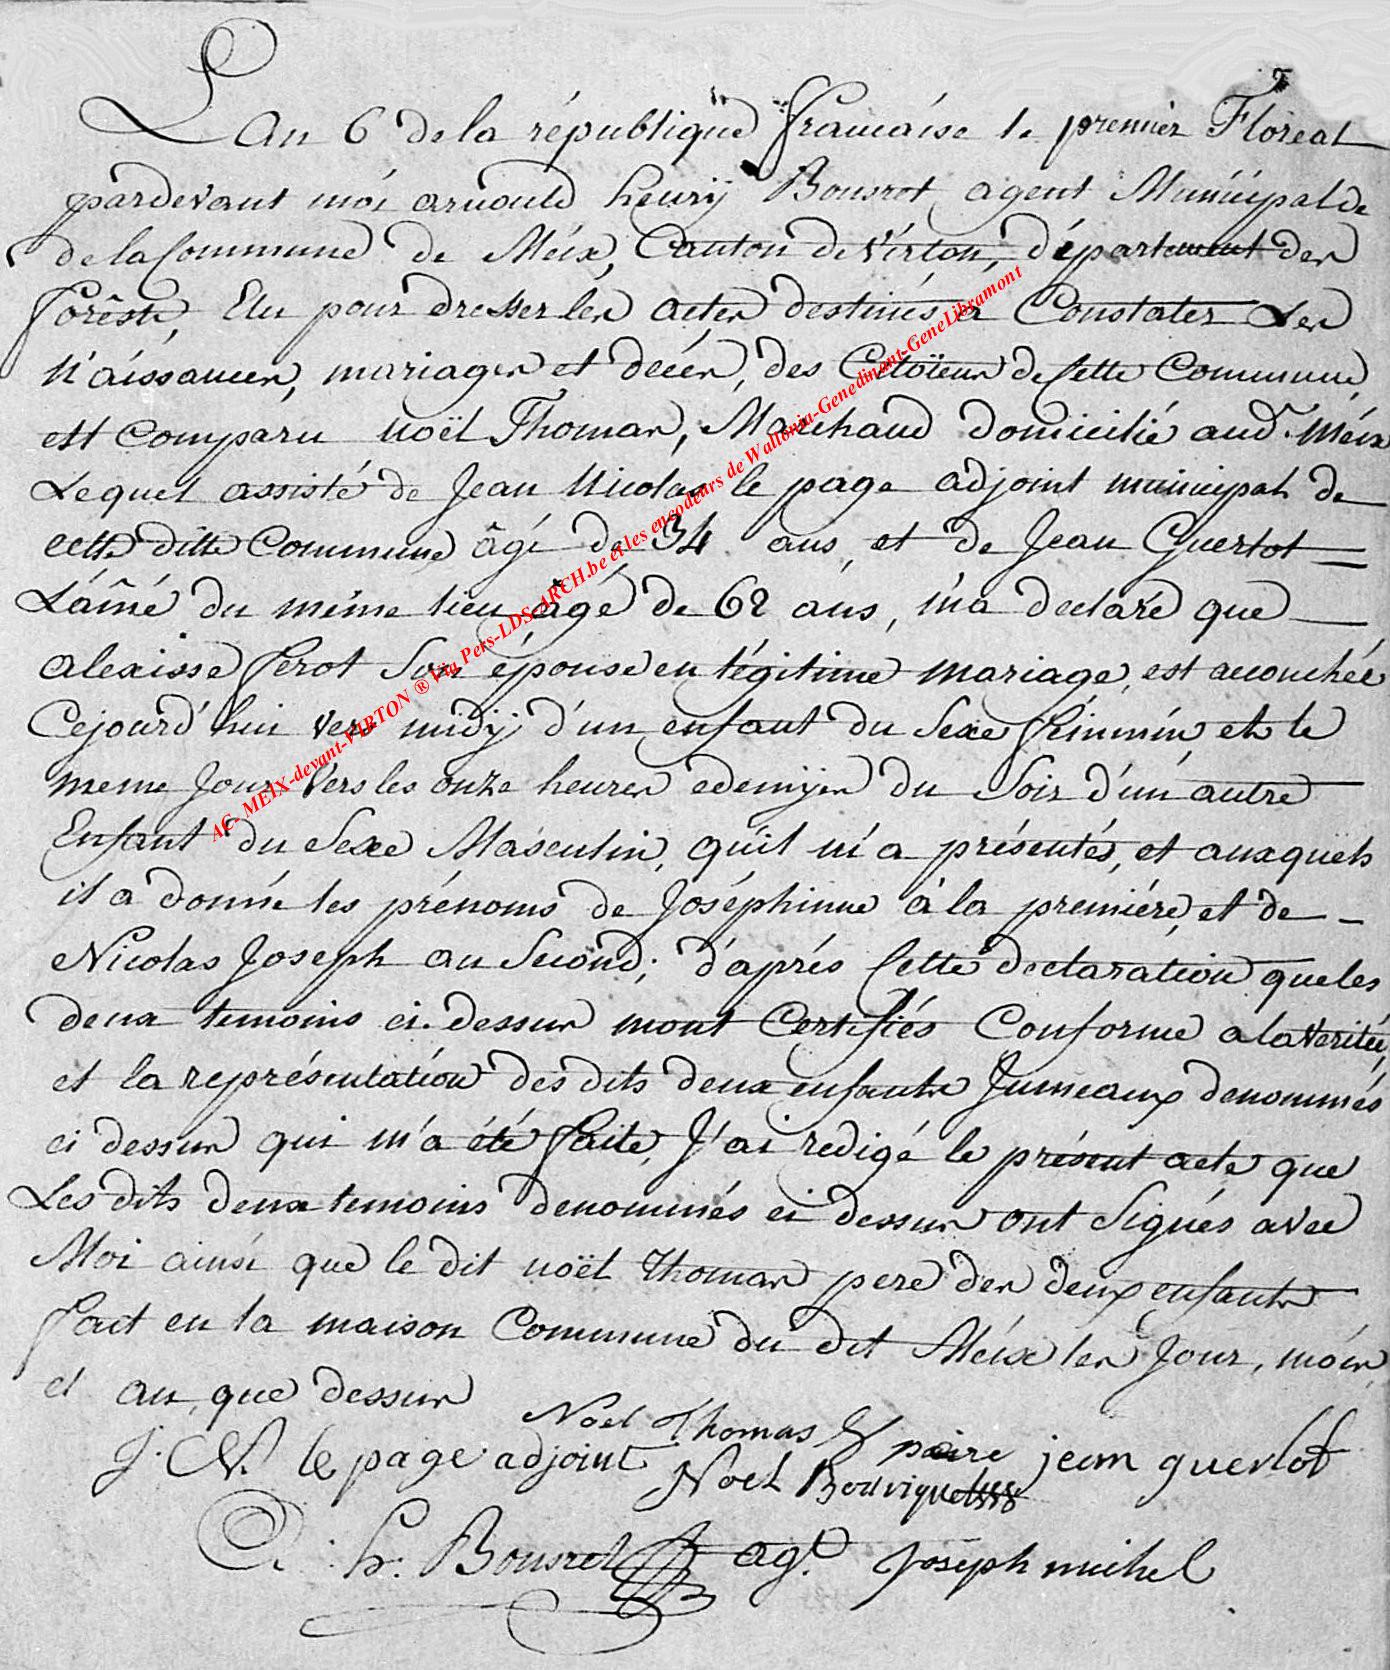 L'an 6 de la république francaise le premier Floreal
pardevant moi arnould henrÿ Bousret agent Municipal de
de la Commune de Méix, Canton de Virton, département des
forêsts, Elu pour dresser les actes destinés a Constater Les
N'aissances, mariages et décés, des Citoÿens de Cette Commune,
est comparu noël Thomas, Marchand domicilié aud.t Méix
Lequel assisté de Jean Nicolas le page adjoint municipal de
cette ditte Commune âgé de 34 ans, et de Jean Guerlot
L'aîné du même lieu âgé de 62 ans, m'a declaré que
alexisse Perot Son épouse en légitime mariage, est accouchée
Cejourd'hui vers midÿ d'un enfant du Sexe féminin, et le
meme Jour Vers les onze heures edemÿe du Soir d'un autre
Enfant du Sexe Masculin, qu'il m'a présentés, et auxquels
il a donné les prénoms de Joséphinne à la premiére, et de
Nicolas Joseph au Second; d'aprés Cette declaration que les
deux temoins ci-dessus mont Certifiés Conforme a la Veritée,
et la représentation des dits deux enfants Jumeaux denommés
ci dessus qui m'a été faite, J'ai redigé le présent acte que
Les dits deux temoins denommés ci dessus ont Signés avec
Moi ainsi que le dit noël Thomas pere des deux enfants
fait en la maison Commune du dit Méix les Jour, mois,
et an que dessus
Noel Thomas paire jean guerlot
J. N. le page adjoint Noel
A: h: Bousret ag.t Joseph michel
AC. MEIX-devant-VIRTON ® Via Pers-LDS-ARCH.be et les encodeurs de Wallonia-Genedinant-GeneLibramont